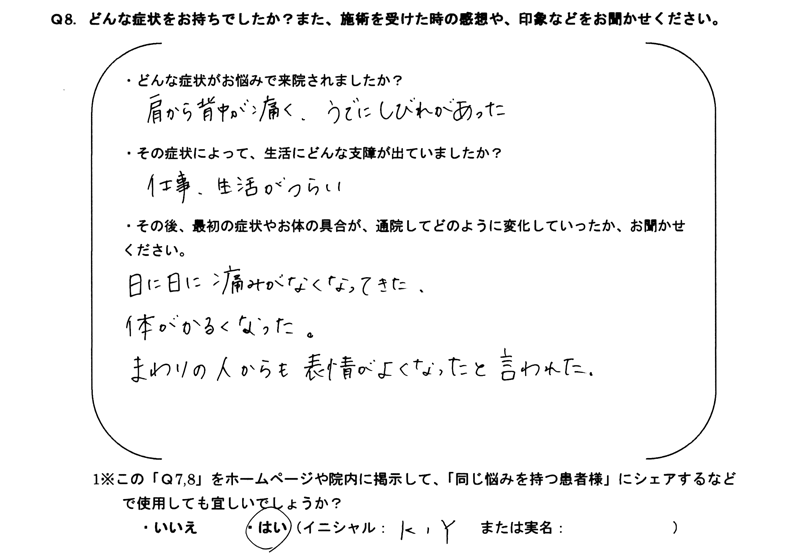 Q8. どんな症状をお持ちでしたか？また、施術を受けた時の感想や、印象などをお聞かせください。
・どんな症状がお悩みで来院されましたか？
肩から背中が痛く、うでにしびれがあった
・その症状によって、生活にどんな支障が出ていましたか？
仕事、生活がつらい
・その後、最初の症状やお体の具合が、通院してどのように変化していったか、お聞かせ
ください。
日に日に痛みがなくなってきた、
体がかるくなった。
まわりの人からも表情がよくなったと言われた、
1※この「Q7,8」をホームページや院内に掲示して、「同じ悩みを持つ患者様」にシェアするなど
で使用しても宜しいでしょうか？
・いいえ ・はい（イニシャル： K.Y または実名： ）